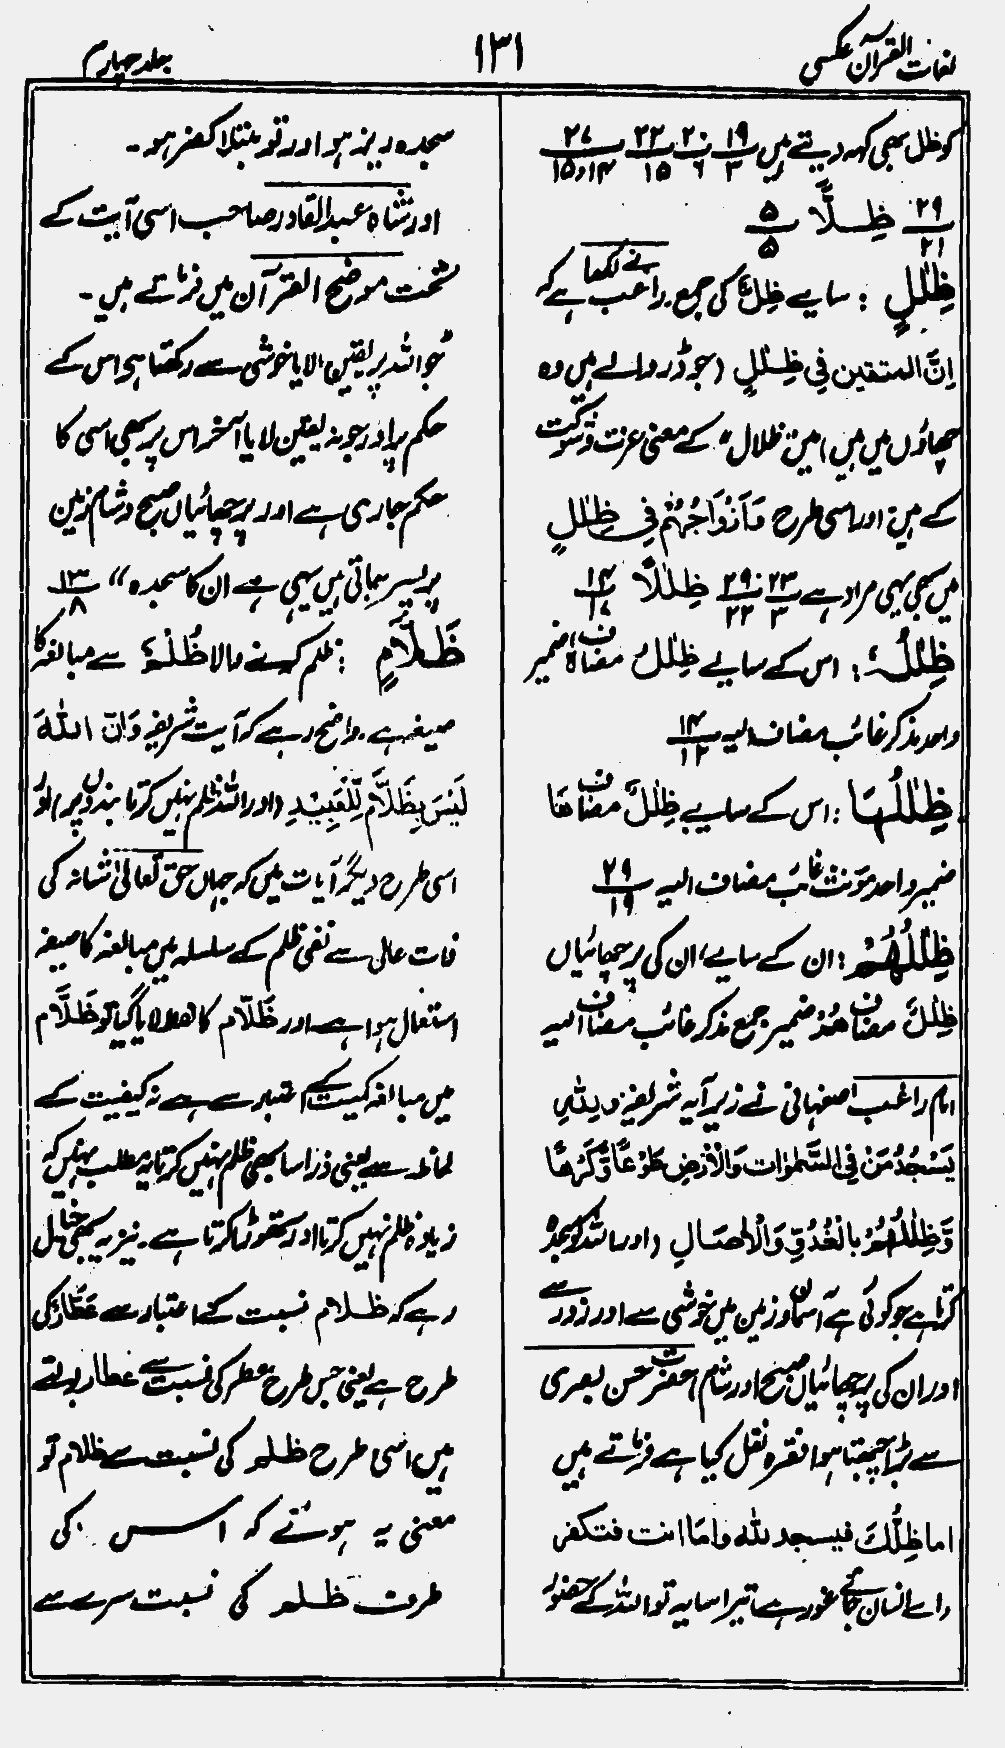 لغات القرآن عکسی
۱۳۱
جلد چہارم
کو ظل بھی کہہ دیتے ہیں ۱۹/۳ ۲۰/۶ ۲۲/۱۵ ۲۷/۱۴و۱۵
۲۹/۲۱ ظِلًّا ۵/۵
ظِلٰلٍ : سایے ظِلٌّ کی جمع۔ راغب نے لکھا ہے کہ
اِنَّ المتقین فِی ظِلٰلٍ (جو ڈر والے ہیں وہ
چھاؤں میں ہیں) میں ظلال کے معنی عزت و شوکت
کے ہیں اور اسی طرح وَاَزْوَاجُهُمْ فِی ظِلٰلٍ
میں بھی یہی مراد ہے ۲۳/۳ ۲۹/۲۲ ظِلٰلًا ۱۴/۱۷
ظِلٰلُہٗ : اس کے سایے ظِلٰلُ مضاف ہٗ ضمیر
واحد مذکر غائب مضاف الیہ ۱۴/۱۲
ظِلٰلُہَا : اس کے سایے ظِلٰلٌ مضاف ھَا
ضمیر واحد مؤنث غائب مضاف الیہ ۲۹/۱۹
ظِلٰلُهُمْ : ان کے سایے، ان کی پرچھائیاں
ظِلٰلُ مضاف هُمْ ضمیر جمع مذکر غائب مضاف الیہ
امام راغب اصفہانی نے زیر آیہ شریفہ وَلِلّٰہِ
یَسْجُدُ مَنْ فِی السَّمٰوٰاتِ وَالْاَرْضِ طَوْعًا وَّکَرْهًا
وَّظِلٰلُهُمْ بِالْغُدُوِّ وَالْاٰصَالِ (اور اللہ کو سجدہ
کرتا ہے جو کوئی ہے آسمان و زمین میں خوشی سے اور زور سے
اور ان کی پرچھائیاں صبح اور شام) حضرت حسن بصری
سے بڑا چبھتا ہوا فقرہ نقل کیا ہے فرماتے ہیں
اما ظِلُّكَ فیسجد للہ واَمّا انت فتکفر
(اے انسان جائے غور ہے تیرا سایہ تو اللہ کے حضور
سجدہ ریز ہو اور تو مبتلا کفر ہو۔
اور شاہ عبدالقادر صاحب اسی آیت کے
تحت موضح القرآن میں فرماتے ہیں۔
"جو اللہ پر یقین لایا خوشی سے رکھتا ہے اس کے
حکم پر اور جو نہ یقین لایا آخر اس پر بھی اسی کا
حکم جاری ہے اور پرچھائیاں صبح و شام زمین
پر پسر جاتی ہیں یہی ہے ان کا سجدہ" ۱۳/۸
ظَلَّامٍ : ظلم کرنے والا ظُلْمٌ سے مبالغہ کا
صیغہ ہے۔ واضح رہے کہ آیت شریفہ وَاَنَّ اللّٰہَ
لَیْسَ بِظَلَّامٍ لِّلْعَبِیْدِ (اور اللہ ظلم نہیں کرتا بندوں پر) اور
اسی طرح دیگر آیات میں کہ جہاں حق تعالیٰ شانہ کی
ذات عالی سے نفی ظلم کے سلسلہ میں مبالغہ کا صیغہ
استعمال ہوا ہے اور ظَلّام کا لفظ لایا گیا تو ظَلَّام
میں مبالغہ کمیت کے اعتبار سے ہے نہ کیفیت کے
لحاظ سے یعنی ذرا سا بھی ظلم نہیں کرتا یہ مطلب نہیں کہ
زیادہ ظلم نہیں کرتا اور تھوڑا کرتا ہے۔ نیز یہ بھی خیال
رہے کہ ظلام نسبت کے اعتبار سے عَطَّارٌ کی
طرح ہے یعنی جس طرح عطر کی نسبت سے عطار بولتے
ہیں اسی طرح ظلم کی نسبت سے ظلام تو
معنی یہ ہوئے کہ اس کی
طرف ظلم کی نسبت سرے سے